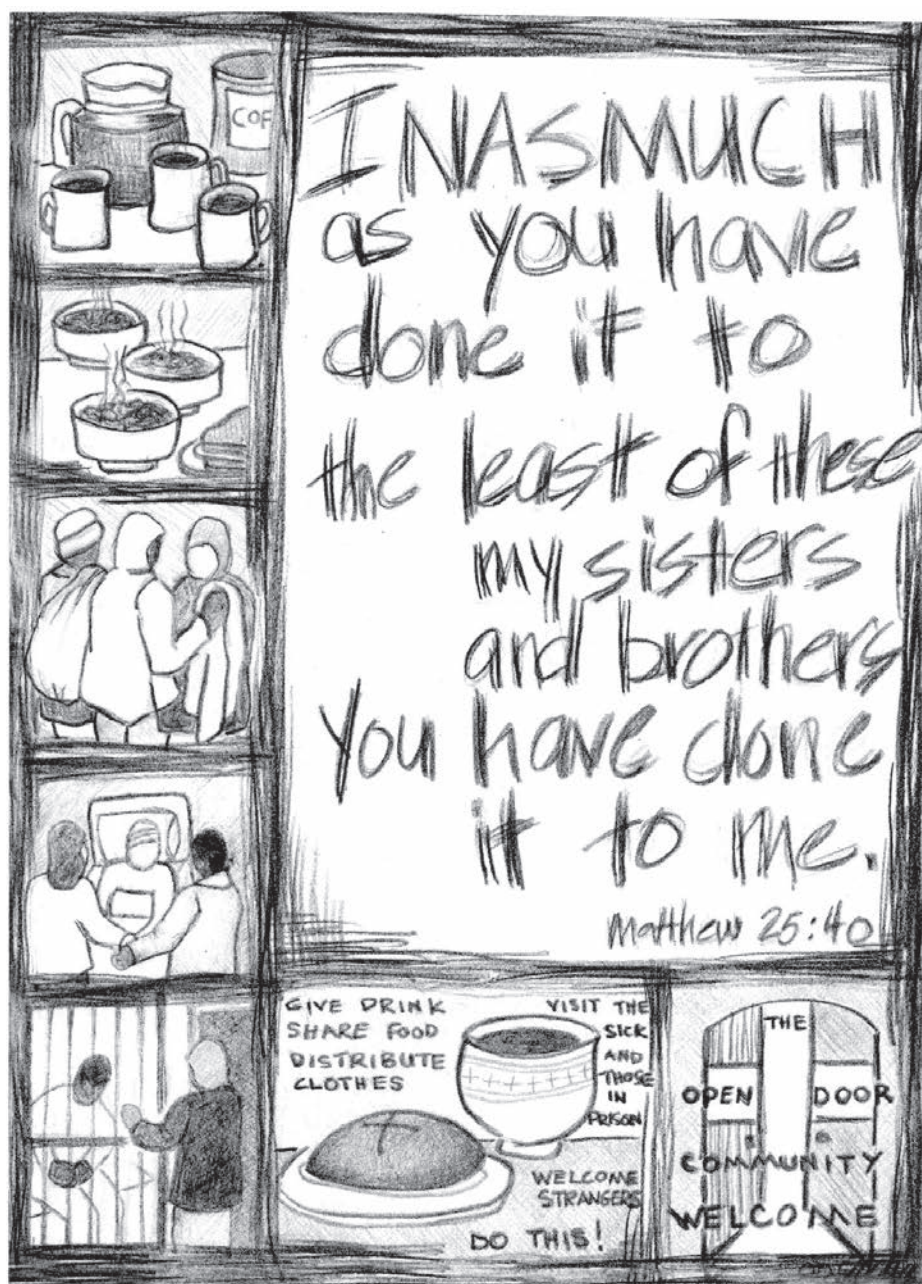 COF
INASMUCH
as you have
done it to
the least of these
my sisters
and brothers
You have done
it to me.
Matthew 25:40
GIVE DRINK
SHARE FOOD
DISTRIBUTE
CLOTHES
VISIT THE
SICK
AND
THOSE
IN
PRISON
WELCOME
STRANGERS
DO THIS!
THE
OPEN DOOR
COMMUNITY
WELCOME